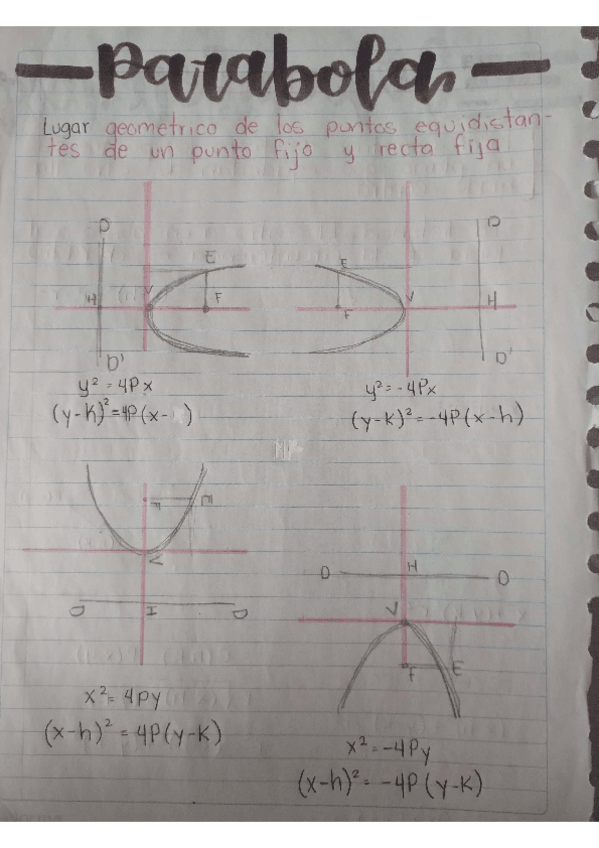 Parabola
Lugar geometrico de los puntos equidistan-
tes de un punto fijo y recta fija
D D
E E
H V F F V H
D' D'
y² = 4Px y² = -4Px
(y-k)² = 4P(x- ) (y-k)² = -4P(x-h)
F E
V
D H D
D H D
V
F E
x² = 4Py
(x-h)² = 4P(y-k)
x² = -4Py
(x-h)² = -4P(y-k)